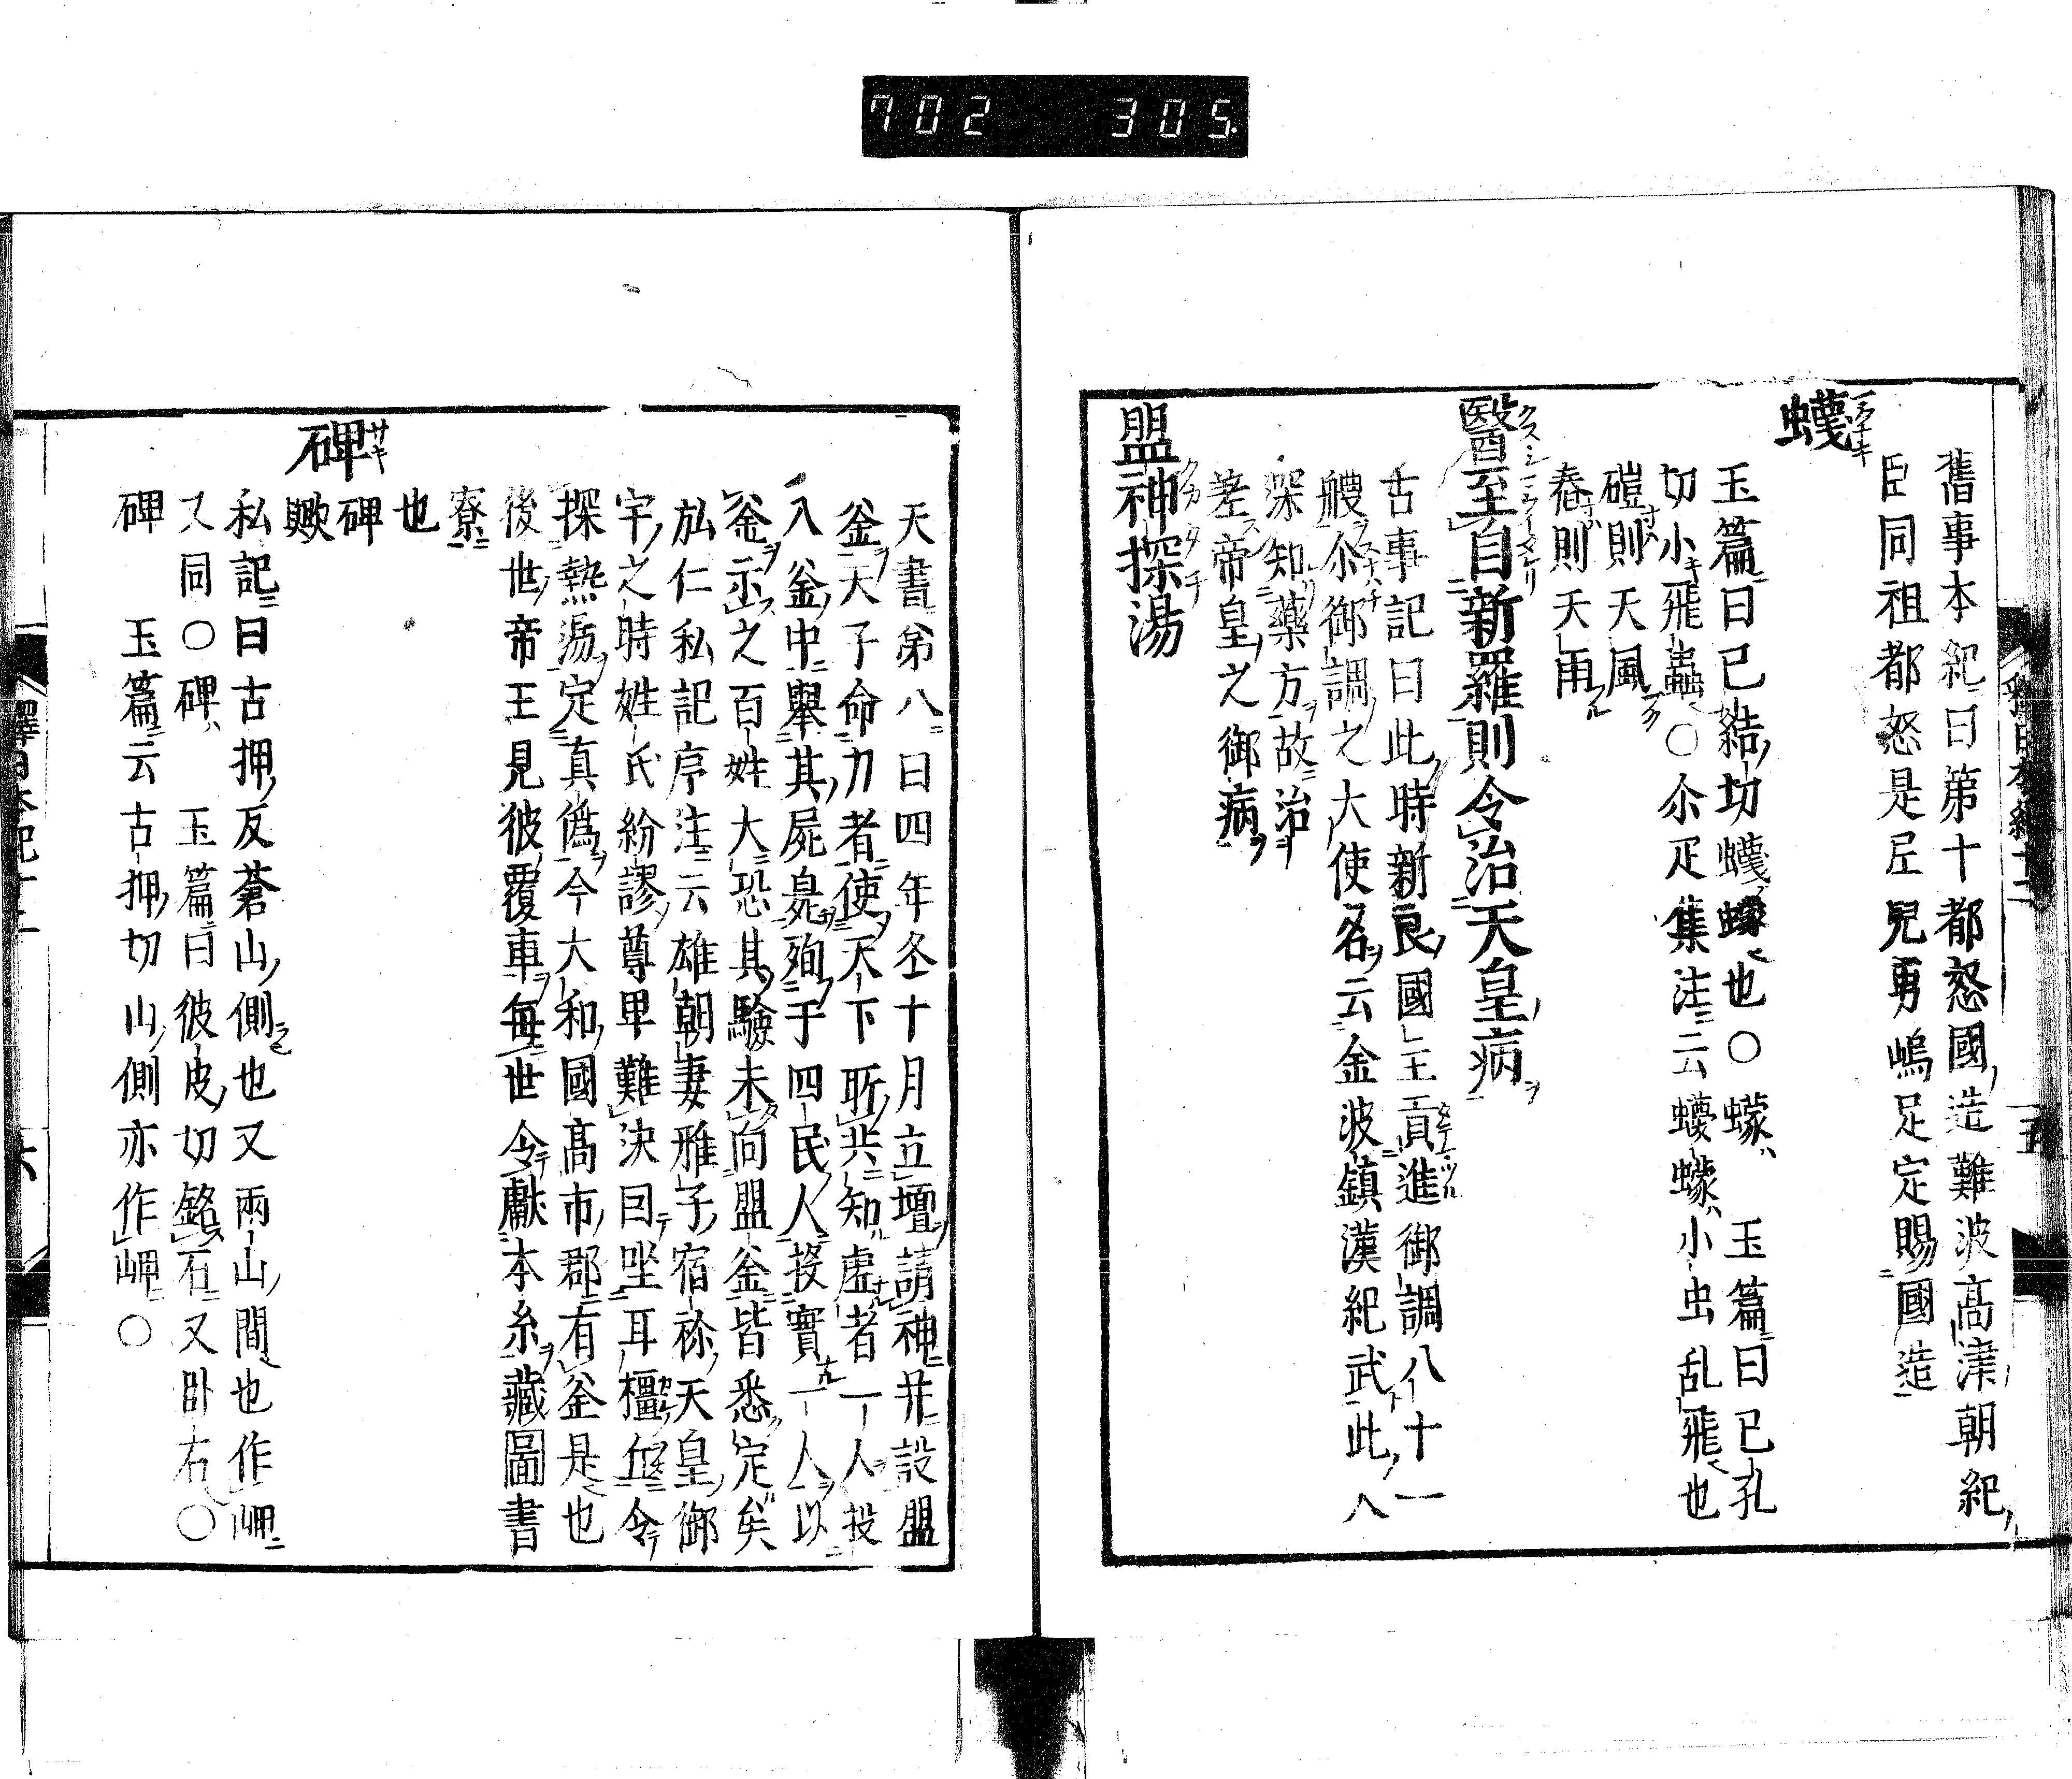 702 305
舊事本紀曰第十都怒國造難波髙津朝紀
臣同祖都怒是足兒男嶋足定賜國造
蠛
玉篇曰已結切蠛蠓也○蠓玉篇曰已孔
切小飛蟲○尒疋集注云蠛蠓小虫乱飛也
磑則天風
舂則天雨
醫至自新羅則令治天皇病
古事記曰此時新良國主貢進御調八十一
艘尒御調之大使名云金波鎮漢紀武此人
深知藥方故治
差帝皇之御病
盟神探湯
天書第八曰四年冬十月立壇請神并設盟
釜天子命力者使天下所共知虚者一人投
入釜中舉其屍臰殉于四民人投實一人以
釜示之百姓大恐其驗未向盟釜皆悉定矣
弘仁私記序注云雄朝妻稚子宿祢天皇御
宇之時姓氏紛謬尊卑難決曰坐耳橿丘令
探熱湯定真偽今大和國髙市郡有釜是也
後世帝王見彼覆車每世令獻本系藏圖書
寮
也
碑
歟
碑
私記曰古押反蒼山側也又兩山間也作岬
又同○碑玉篇曰彼皮切銘石又卧石○
碑玉篇云古押切山側亦作岬○
釋日本紀十二
六